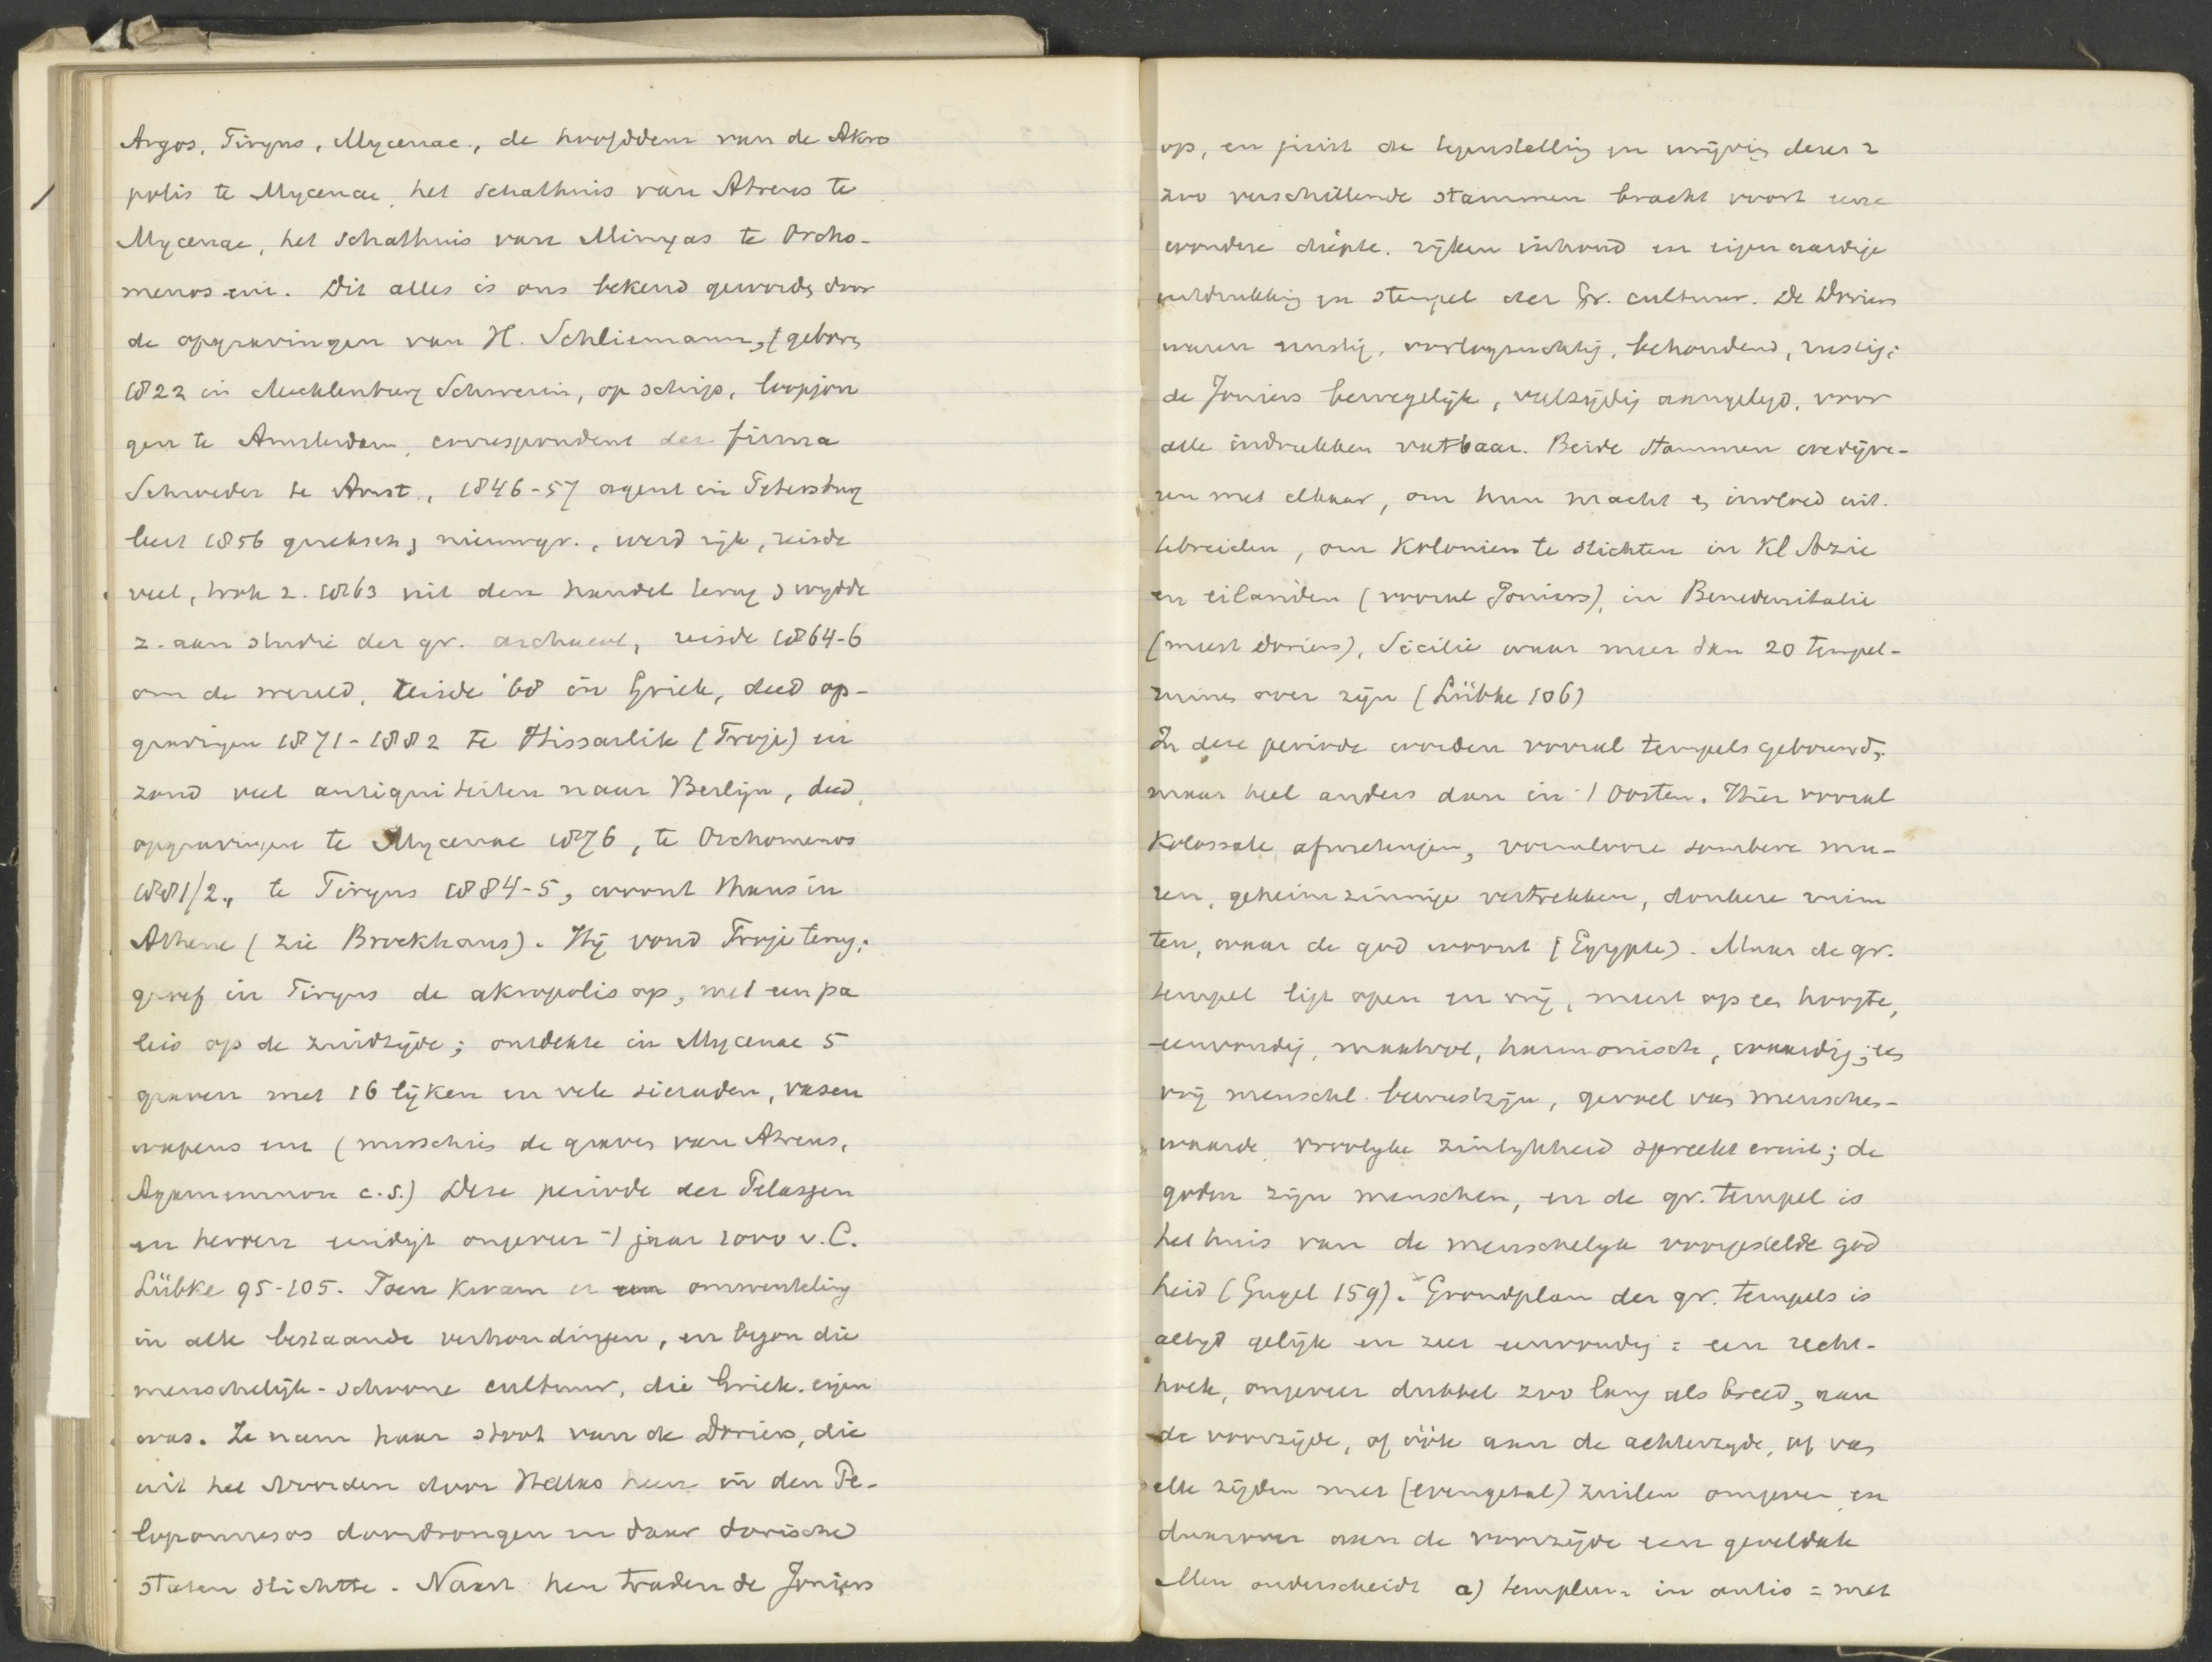 Argos, Tiryns, Mycenae, de hoofddeur van de Akro
polis te Mycenae, het schathuis van Atreus te
Mycenae, het schathuis van Minyas te Orcho-
menos enz. Dit alles is ons bekend geworden door
de opgravingen van H. Schliemann, geboren
1822 in Mecklenburg Schwerin, op schip, loopjon
gen te Amsterdam, correspondent der firma
Schroeder te Amst., 1846-57 agent in Petersburg
leert 1856 grieksch, nieuwgr., werd rijk, reisde
veel, trok z. 1863 uit den handel terug, wydde
z. aan studie der gr. archaeol, reisde 1864-6
om de wereld, reisde '68 in Griek, deed op-
gravingen 1871-1882 te Hissarlik (Troje) en
zond veel antiquiteiten naar Berlijn, deed
opgravingen te Mycenae 1876, te Orchomenos
1881/2, te Tiryns 1884-5, woont thans in
Athene (zie Brockhaus). Hij vond Troje terug;
groef in Tiryns de akropolis op, met een pa
leis op de zuidzijde; ontdekte in Mycenae 5
graven met 16 lijken en vele sieraden, vasen
wapens enz (misschien de graven van Atreus,
Agamemnon c.s.) Deze periode der Pelasgen
en heroen eindigt ongeveer 't jaar 1000 v. C.
Lübke 95-105. Toen kwam er een omwenteling
in alle bestaande verhoudingen, en begon die
menschelijk-schoone cultuur, die Griek. eigen
was. Ze nam haar stoot van de Doriers, die
uit het Noorden door Hellas heen in den Pe-
loponnesos doordrongen en daar dorische
staten stichtte. Naast hen traden de Joniers
op, en juist de tegenstelling en wrijving dezer 2
zoo verschillende stammen bracht voort eene
wondere diepte, rijken inhoud en eigenaardige
uitdrukking en stempel der Gr. cultuur. De Doriers
waren ernstig, oorlogzuchtig, behoudend, rustig;
de Joniers bewegelijk, veelzijdig aangelegd, voor
alle indrukken vatbaar. Beide stammen wedijve-
ren met elkaar, om hun macht en invloed uit.
tebreiden, om Kolonien te stichten in Kl Azie
en eilanden (vooral Joniers), in Benedenitalie
(meest Doriers), Sicilie waar meer dan 20 tempel-
ruines over zijn (Lübke 106)
In deze periode worden vooral tempels gebouwd,
maar heel anders dan in 't Oosten. Hier vooral
Kolossale afmetingen, vormlooze sombere mu-
ren, geheimzinnige vertrekken, donkere ruim
ten, waar de god woont (Egypte). Maar de gr.
tempel ligt open en vrij, meest op een hoogte,
eenvoudig, maatvol, harmonisch, waardig; een
vrij menschel. bewustzijn, gevoel van menschen-
waarde, vroolyke zinlykheid spreekt eruit; de
goden zijn menschen, en de gr. tempel is
het huis van de menschelyk voorgestelde god
heid (Gugel 159). Grondplan der gr. tempels is
altyd gelijk en zeer eenvoudig = een recht-
hoek, ongeveer dubbel zoo lang als breed, aan
de voorzijde, of óók aan de achterzyde, of van
alle zijden met (evengetal) zuilen omgeven en
daarover aan de voorzijde een geveldak
Men onderscheidt a) templum in antis = met